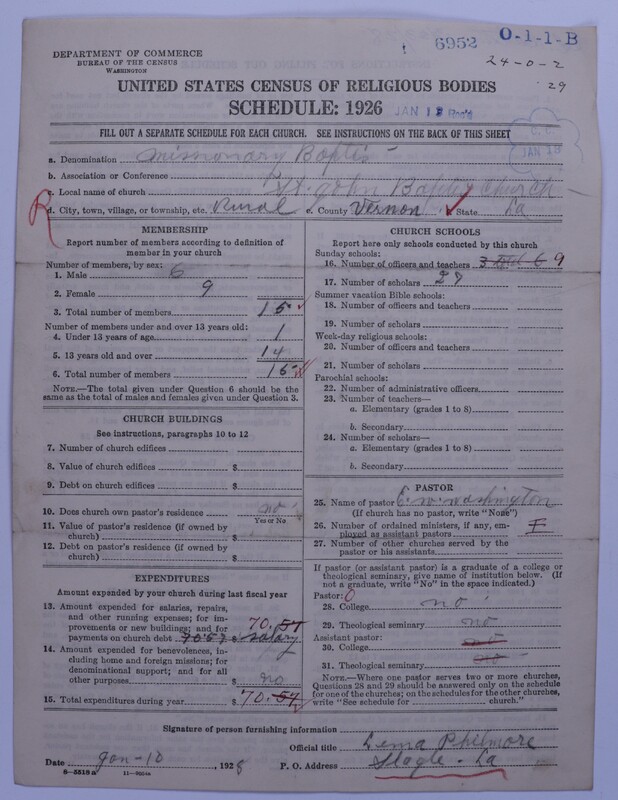 6952 O-1-1-B
DEPARTMENT OF COMMERCE
BUREAU OF THE CENSUS
WASHINGTON
24-0-2
29
UNITED STATES CENSUS OF RELIGIOUS BODIES
SCHEDULE: 1926 JAN 13 Rec'd
FILL OUT A SEPARATE SCHEDULE FOR EACH CHURCH. SEE INSTRUCTIONS ON THE BACK OF THIS SHEET
JAN 13
a. Denomination Missionary Baptis
b. Association or Conference
c. Local name of church St. John Baptis Church
R d. City, town, village, or township, etc. Rural e. County Vernon State La
MEMBERSHIP
Report number of members according to definition of
member in your church
Number of members, by sex:
1. Male 6
2. Female 9
3. Total number of members 15
Number of members under and over 13 years old:
4. Under 13 years of age 1
5. 13 years old and over 14
6. Total number of members 15
NOTE.—The total given under Question 6 should be
same as the total of males and females given under Question 3.
CHURCH BUILDINGS
See instructions, paragraphs 10 to 12
7. Number of church edifices
8. Value of church edifices $
9. Debt on church edifices $
10. Does church own pastor's residence no
Yes or No
11. Value of pastor's residence (if owned by
church) $
12. Debt on pastor's residence (if owned by
church) $
EXPENDITURES
Amount expended by your church during last fiscal year
13. Amount expended for salaries, repairs,
and other running expenses; for im-
provements or new buildings; and for 70.57
payments on church debt 70.57 salary
14. Amount expended for benevolences, in-
cluding home and foreign missions; for
denominational support; and for all
other purposes $ no
15. Total expenditures during year $ 70.57
CHURCH SCHOOLS
Report here only schools conducted by this church
Sunday schools:
16. Number of officers and teachers 3 6 9
17. Number of scholars 27
Summer vacation Bible schools:
18. Number of officers and teachers
19. Number of scholars
Week-day religious schools:
20. Number of officers and teachers
21. Number of scholars
Parochial schools:
22. Number of administrative officers
23. Number of teachers—
a. Elementary (grades 1 to 8)
b. Secondary
24. Number of scholars—
a. Elementary (grades 1 to 8)
b. Secondary
PASTOR
25. Name of pastor E. W. Washington
(If church has no pastor, write "None")
26. Number of ordained ministers, if any, em-
ployed as assistant pastors
27. Number of other churches served by the
pastor or his assistants
If pastor (or assistant pastor) is a graduate of a college or
theological seminary, give name of institution below. (If
not a graduate, write "No" in the space indicated.)
Pastor: 0
28. College no
29. Theological seminary no
Assistant pastor:
30. College no
31. Theological seminary no
NOTE.—Where one pastor serves two or more churches,
Questions 28 and 29 should be answered only on the schedule
for one of the churches; on the schedules for the other churches,
write "See schedule for church."
Signature of person furnishing information
Official title Lema Philmore
Date Jan-10, 1928 P. O. Address Slagle - La
8-5518a